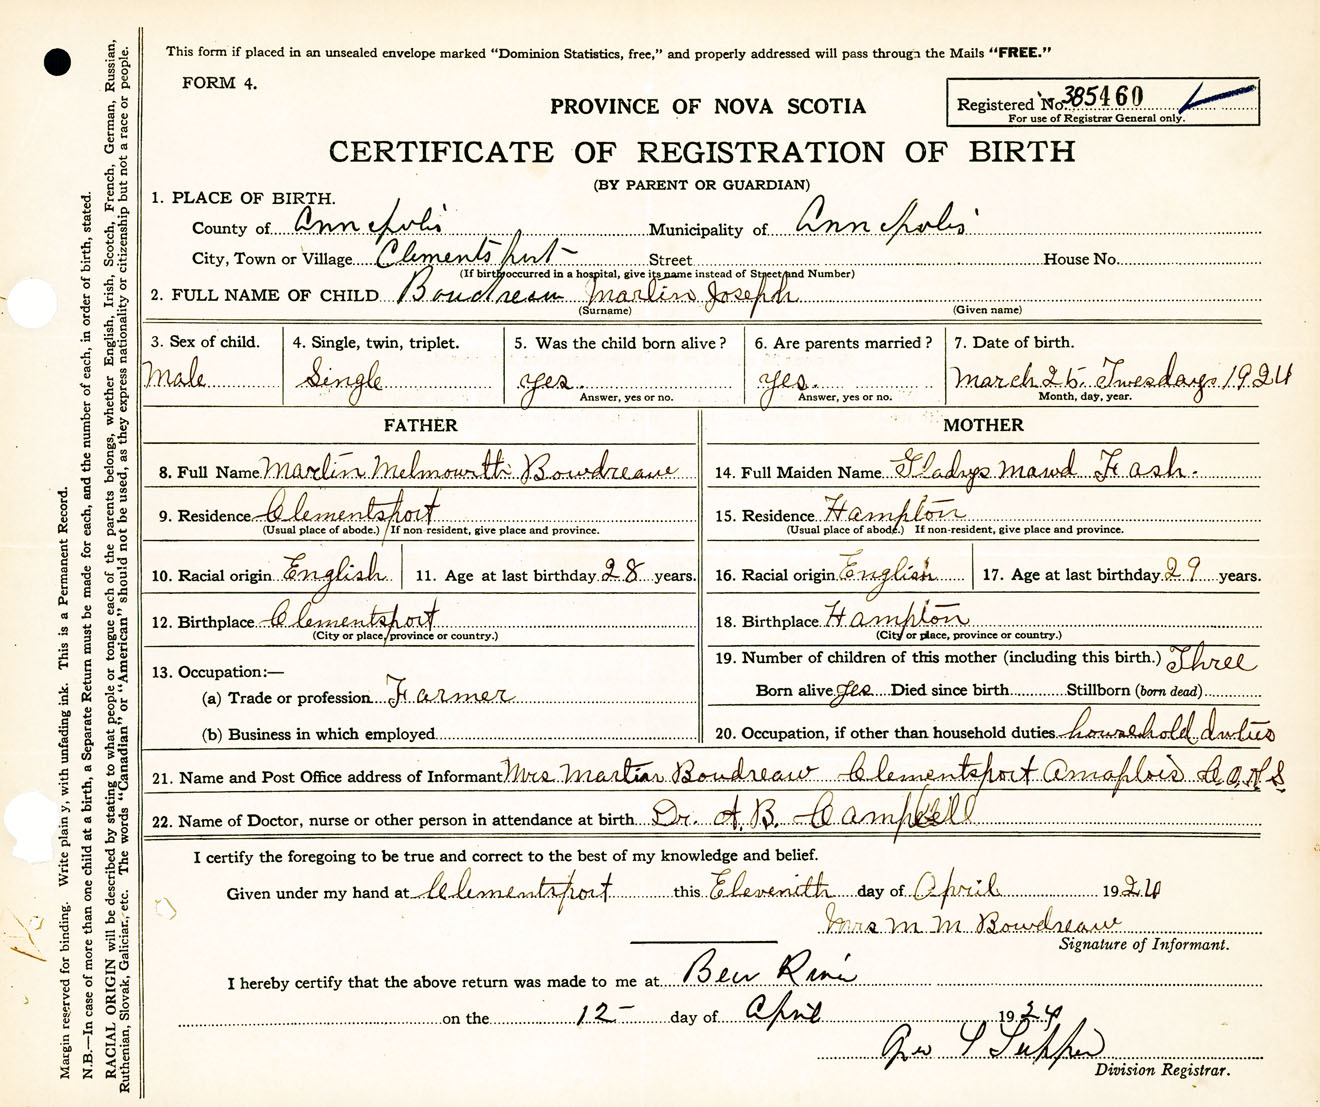 This form if placed in an unsealed envelope marked “Dominion Statistics, free,” and properly addressed will pass through the Mails “FREE.”
FORM 4.
Registered No. 385460
For use of Registrar General only.
PROVINCE OF NOVA SCOTIA
CERTIFICATE OF REGISTRATION OF BIRTH
(BY PARENT OR GUARDIAN)
1. PLACE OF BIRTH.
County of Annapolis Municipality of Annapolis
City, Town or Village Clementsport Street House No.
(If birth occurred in a hospital, give its name instead of Street and Number)
2. FULL NAME OF CHILD Boudreau Marlin Joseph
(Surname) (Given name)
3. Sex of child. 4. Single, twin, triplet. 5. Was the child born alive? 6. Are parents married? 7. Date of birth.
Male Single yes. yes. March 25. Tuesday. 1924
Answer, yes or no. Answer, yes or no. Month, day, year.
FATHER MOTHER
8. Full Name Marlin Melmourth Bowdreau 14. Full Maiden Name Gladys Mawd Fash.
9. Residence Clementsport 15. Residence Hampton
(Usual place of abode.) If non-resident, give place and province. (Usual place of abode.) If non-resident, give place and province.
10. Racial origin English 11. Age at last birthday 28 years. 16. Racial origin English 17. Age at last birthday 29 years.
12. Birthplace Clementsport 18. Birthplace Hampton
(City or place, province or country.) (City or place, province or country.)
13. Occupation:— 19. Number of children of this mother (including this birth.) Three
(a) Trade or profession Farmer Born alive yes Died since birth Stillborn (born dead)
(b) Business in which employed 20. Occupation, if other than household duties household duties
21. Name and Post Office address of Informant Mrs. Martin Boudreaw Clementsport Anaplois Co. N.S.
22. Name of Doctor, nurse or other person in attendance at birth Dr. A. B. Campbell
I certify the foregoing to be true and correct to the best of my knowledge and belief.
Given under my hand at Clementsport this Elevenith day of April 1924
Mrs M M Bowdreaw
Signature of Informant.
I hereby certify that the above return was made to me at
on the 12 day of April 1924
Division Registrar.
Margin reserved for binding. Write plainly, with unfading ink. This is a Permanent Record.
N.B.—In case of more than one child at a birth, a Separate Return must be made for each, and the number of each, in order of birth, stated.
RACIAL ORIGIN will be described by stating to what people or tongue each of the parents belongs, whether English, Irish, Scotch, French, German, Russian,
Ruthenian, Slovak, Galician, etc. The words “Canadian” or “American” should not be used, as they express nationality or citizenship but not a race or people.